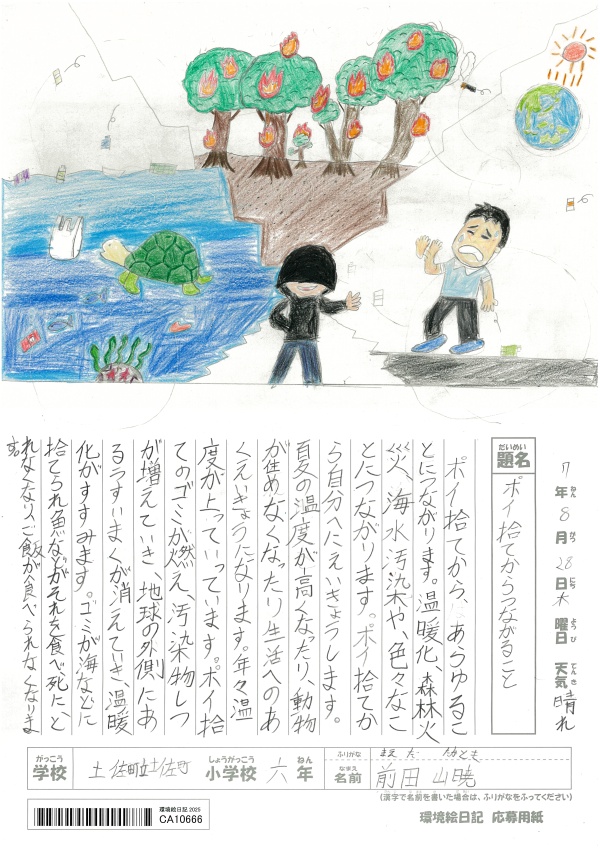 7年8月28日木曜日 天気晴れ
ねん がつ にち ようび てんき
だいめい
題名
ポイ捨てからつながること
ポイ捨てから、あらゆるこ
とにつながります。温暖化、森林火
災、海水汚染や、色々なこ
とにつながります。ポイ捨てか
ら自分へにえいきょうします。
夏の温度が高くなったり、動物
が住めなくなったり生活へのあ
くえいきょうになります。年々温
度が上っていっています。ポイ捨
てのゴミが燃え、汚染物しつ
が増えていき、地球の外側にあ
るうすいまくが消えていき、温暖
化がすすみます。ゴミが海などに
捨てられ魚などがそれを食べ死に、と
れなくなり、ご飯が食べられなくなりま
す。
がっこう
学校
土佐町立土佐町
しょうがっこう
小学校
六
ねん
年
ふりがな
まえだ
なまえ
名前
前田 山暁
(漢字で名前を書いた場合は、ふりがなをふってください)
環境絵日記 2025
CA10666
環境絵日記 応募用紙